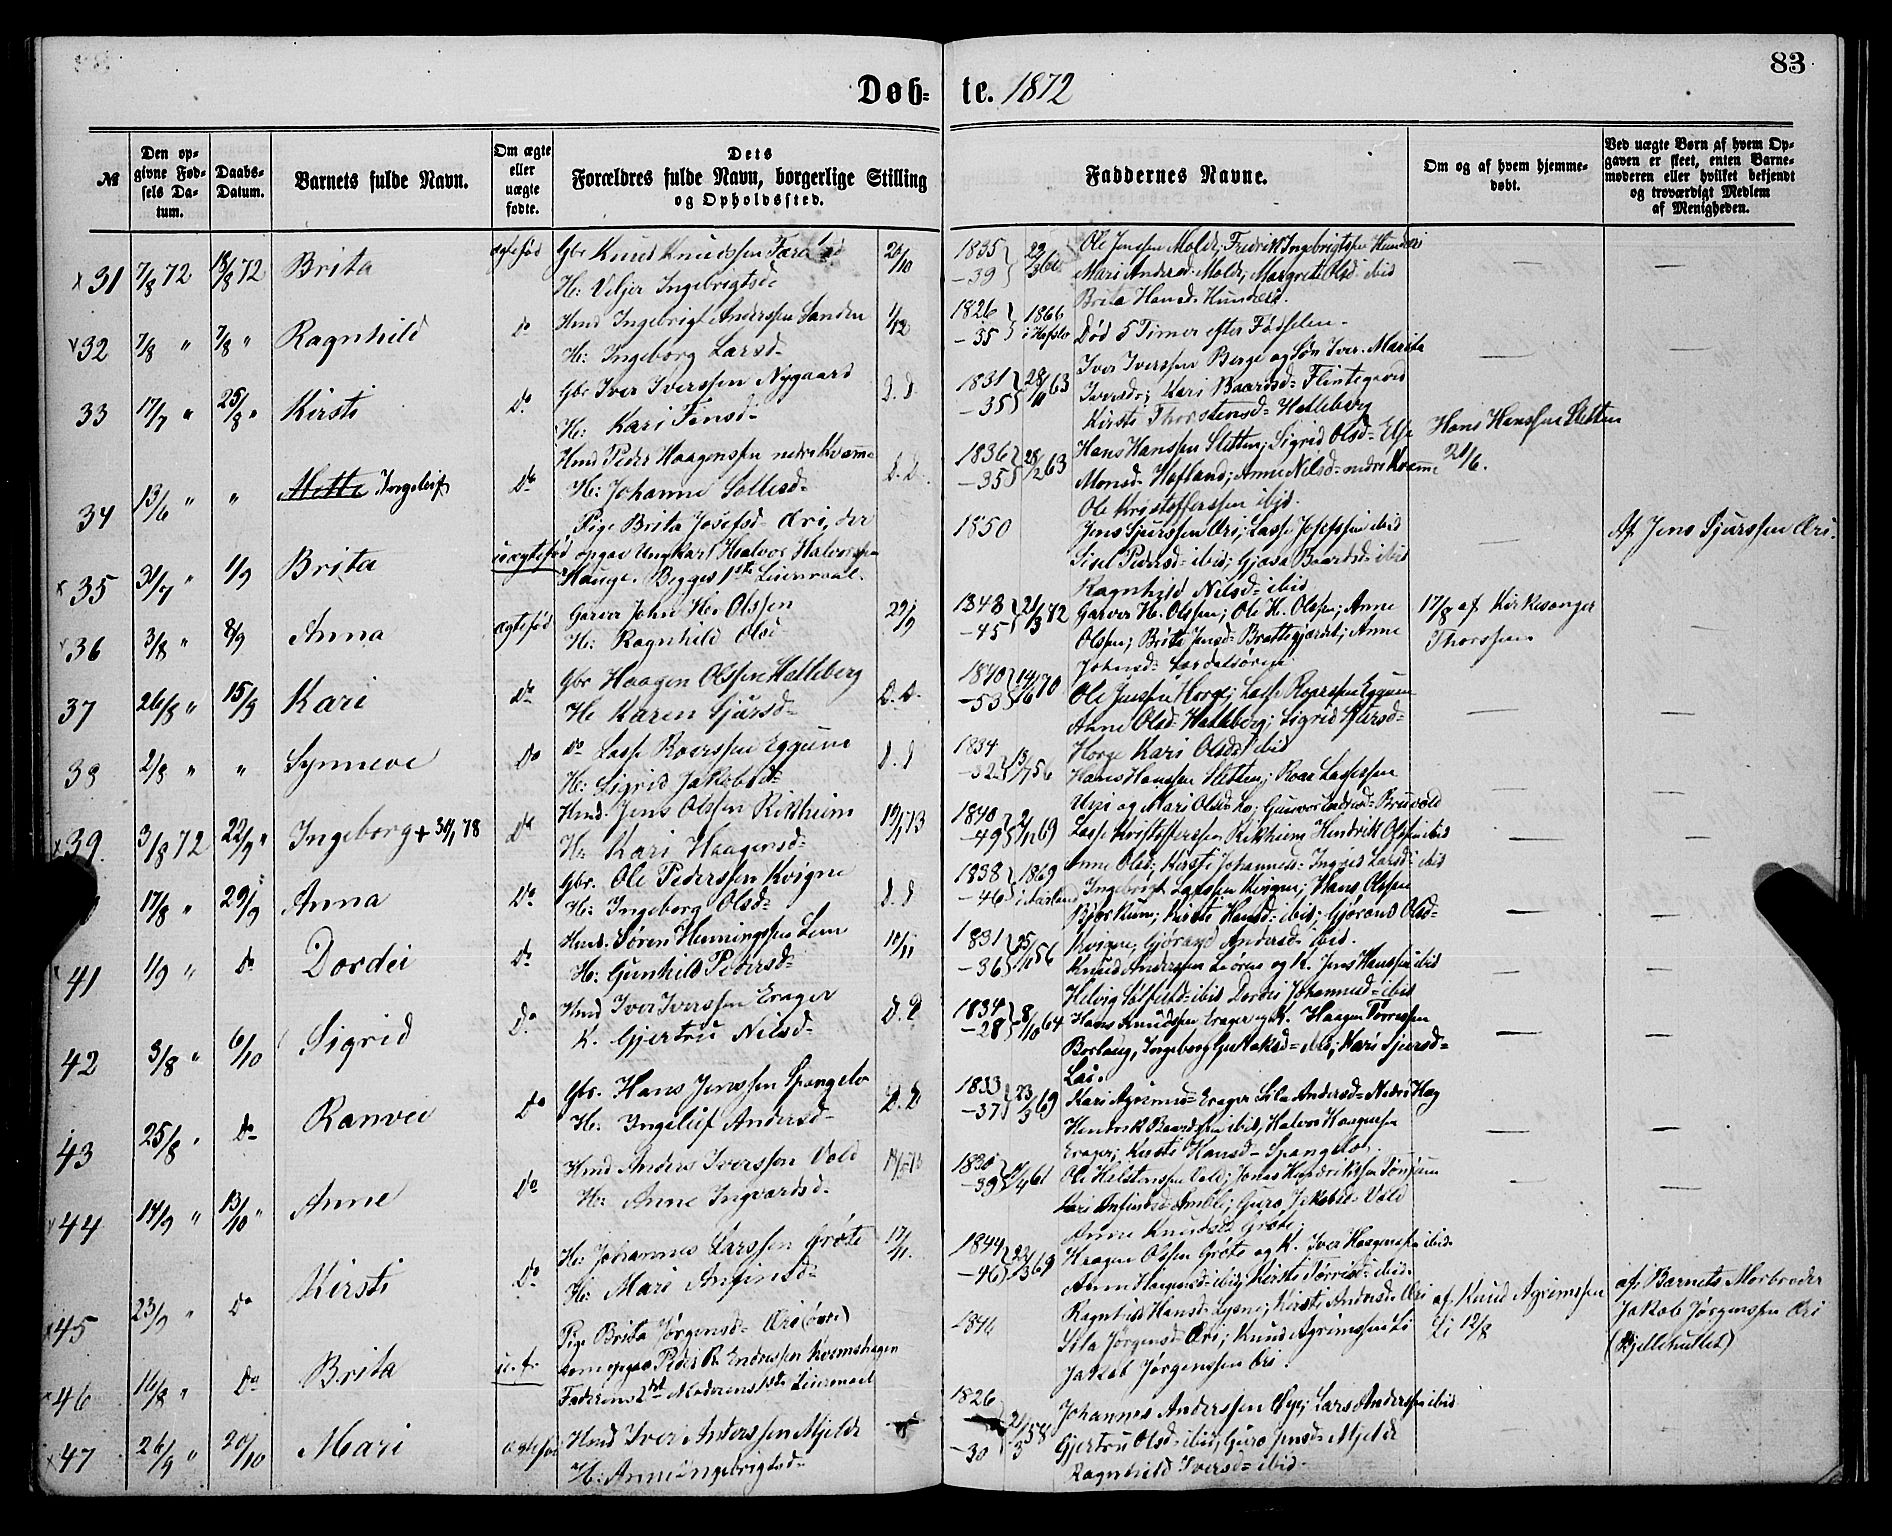 83
Døb=te. 1872
№
Den op-
givne Fød-
sels Da-
tum.
Daabs-
Datum.
Barnets fulde Navn.
Om ægte
eller
uægte
fødte.
Dets
Forældres fulde Navn, borgerlige Stilling
og Opholdssted.
Faddernes Navne.
Om og af hvem hjemme-
døbt.
Ved uægte Børn af hvem Op-
gaven er skeet, enten Barne-
moderen eller hvilket bekjendt
og troværdigt Medlem
af Menigheden.
31 7/8 72 18/8 72 Brita ægtefød
Gbr Knud Knudssen
H: Veljer Ingebrigtsd=
1835 -39
Ole Jenssen Molde; Fredrik Ingebrigtssen Hunderi
Mari Andersd= Molde; Margrete Olsd= ibid
Brita Hansd= Hunderi.
32 7/8 " 7/8 " Ragnhild do
Hmd Ingebrigt Anderssen Sanden
H: Ingeborg Larsd=
1/12
1826 -35 1866 i Hafslo
Død 5 Timer efter Fødselen.
33 17/7 " 25/8 " Kirsti Do
Gbr Iver Iverssen Nygaard
H: Kari Finsd=
D. D
1831 -35 28/11 63
Iver Iverssen Berge og Søn Iver. Marita
Iversd=; Kari Baardsd= Flintegaard
Kirsti Thorstensd= Hatleberg
34 13/6 " " Mette Ingeleif Do
Hmd Peder Haagenssen nedre Kvamme
H: Johanne Sollesd=
D. D.
1836 -35 28/12 63
Hans Hanssen Sletten; Sigrid Olsd= Else
Monsd= Hofland; Anne Nilsd= nedre Kvamme
Ole Kristofferssen ibid.
Hans Hanssen Sletten
21/6.
35 31/7 " 1/9 Brita uægtefød
Pige Brita Josefsd= Øri, der
opgav Ungkarl Halvor Halvorssen
Hauge. Begges 1ste Leiermaal.
1850
Jens Sjurssen Øri; Lasse Josefssen ibid
Sisel Pedersd= ibid; Gjøsa Baardsd= ibid
Ragnhild Nilsd= ibid
Af Jens Sjurssen Øri.
36 3/8 " 8/9 Anna ægtefød
Garver John Hei Olssen
H: Ragnhild Olsd
29/9
1848 -45 21/3 72
Garver H. Olssen; Ole H. Olssen; Anne
Olssen; Brita Jensd= Brattegjerdet; Anne
Johnsd= Lærdalsøren
17/8 af Kirkesanger
Thorssen
37 26/8 " 15/9 Kari Do
Gbr Haagen Olssen Hatleberg
H: Karen Sjursd=
D. D.
1840 -53 14/6 70
Ole Jenssen Horge; Lasse Roarssen Eggum
Anne Olsd= Hatleberg; Sigrid Petersd=
Horge Kari Olsd= ibid
38 2/8 " " Synneve Do
do Lasse Roarssen Eggum
H: Sigrid Jakobsd=
D. D
1834 -32 13/7 56
Hans Hanssen Sletten; Roar Lassessen
39 3/8 72 22/9 " Ingeborg + 78 Do
Hmd. Jens Olssen Rikheim
H: Kari Haagensd=
1840 -49 69
Lasse Kristofferssen Rikheim Hendrik Olssen ibid
Anne Olsd=; Kirsti Johannesd= Ingeri Larsd= ibid
17/8 " 29/9 Anna Do
Gbr. Ole Pederssen Kvigne
H: Ingeborg Olsd=
D. D
1838 -46 1869 i Aarland
Ingebrigt Larssen Kvigne; Hans Olssen
Bjørkum; Kirsti Hansd= ibid; Gjørond Olsd=
Kvigne; Gjørond Andersd= ibid.
41 1/9 " Do Dordei Do
Hmd. Søren Hemingssen Lem
H: Gunhild Pedersd=
10/11
1831 -36 25/11 56
Knud Anderssen Liøren og K. Jens Hanssen ibid
Helvig Solfestd= ibid Dordei Johannesd= ibid
42 3/8 " 6/10 Sigrid Do
Hmd Iver Iverssen Erager
K. Gjertru Nilsd=
D. D
1834 -28 8/10 64
Hans Knudssen Erager og K. Haagen Torressen
Borlaug, Ingeborg Gustaksd= ibid; Kari Sjursd=
43 25/8 " Do Ranvei Do
Gbr. Hans Jenssen Spangelo
H: Ingeleif Andersd=
D. D
1833 -37 23/3 69
Kari Agrimsd= Erager Sila Andersd= Nedre Hag
Hendrik Baardssen ibid, Halvor Haagenssen
Erager; Kirsti Hansd= Spangelo.
44 14/9 " 13/10 " Anne Do
Hmd Anders Iverssen Vold
H: Anne Ingvardsd=
1830 -39 61
Ole Helstenssen Vold; Jonas Hendrikssen Tønjum
Kari Anfindsd= Amble; Guro Jakobsd= Vold
Anne Knudsd= Grøte;
45 23/9 " Do Kirsti Do
H: Johannes Larssen Grøte
H: Mari Anfinsd=
17/11.
1844 -46 23/3 69
Haagen Olssen Grøte og K. Iver Haagenssen ibid.
Anne Haagensd= ibid; Kirsti Torrisd= ibid.
46 16/8 " Do Brita u.f.
Pige Brita Jørgensd= Øri (øvre)
som opgav Peder R. Endressen Kvemshagen
Faderens 2det Moderens 1ste Leiermaal
1846
Ragnhild Hansd= Lysne; Kirsti Andersd= Øri
Sila Jørgensd= Øri; Knud Agrimssen Li
Jakob Jørgenssen Øri.
af Knud Agrimssen
Li 12/8
af Barnets Morbroder
Jakob Jørgenssen Øri
47 26/9 " 20/10 Mari ægtefød
Hmd Iver Anderssen Mjelde
H: Anne Ingebrigtsd=
1826 -30 21/3 58
Johannes Anderssen Øye; Lars Anderssen ibid
Gjertru Olsd= ibid; Guro Jensd= Mjelde
Ragnhild Iversd= ibid.